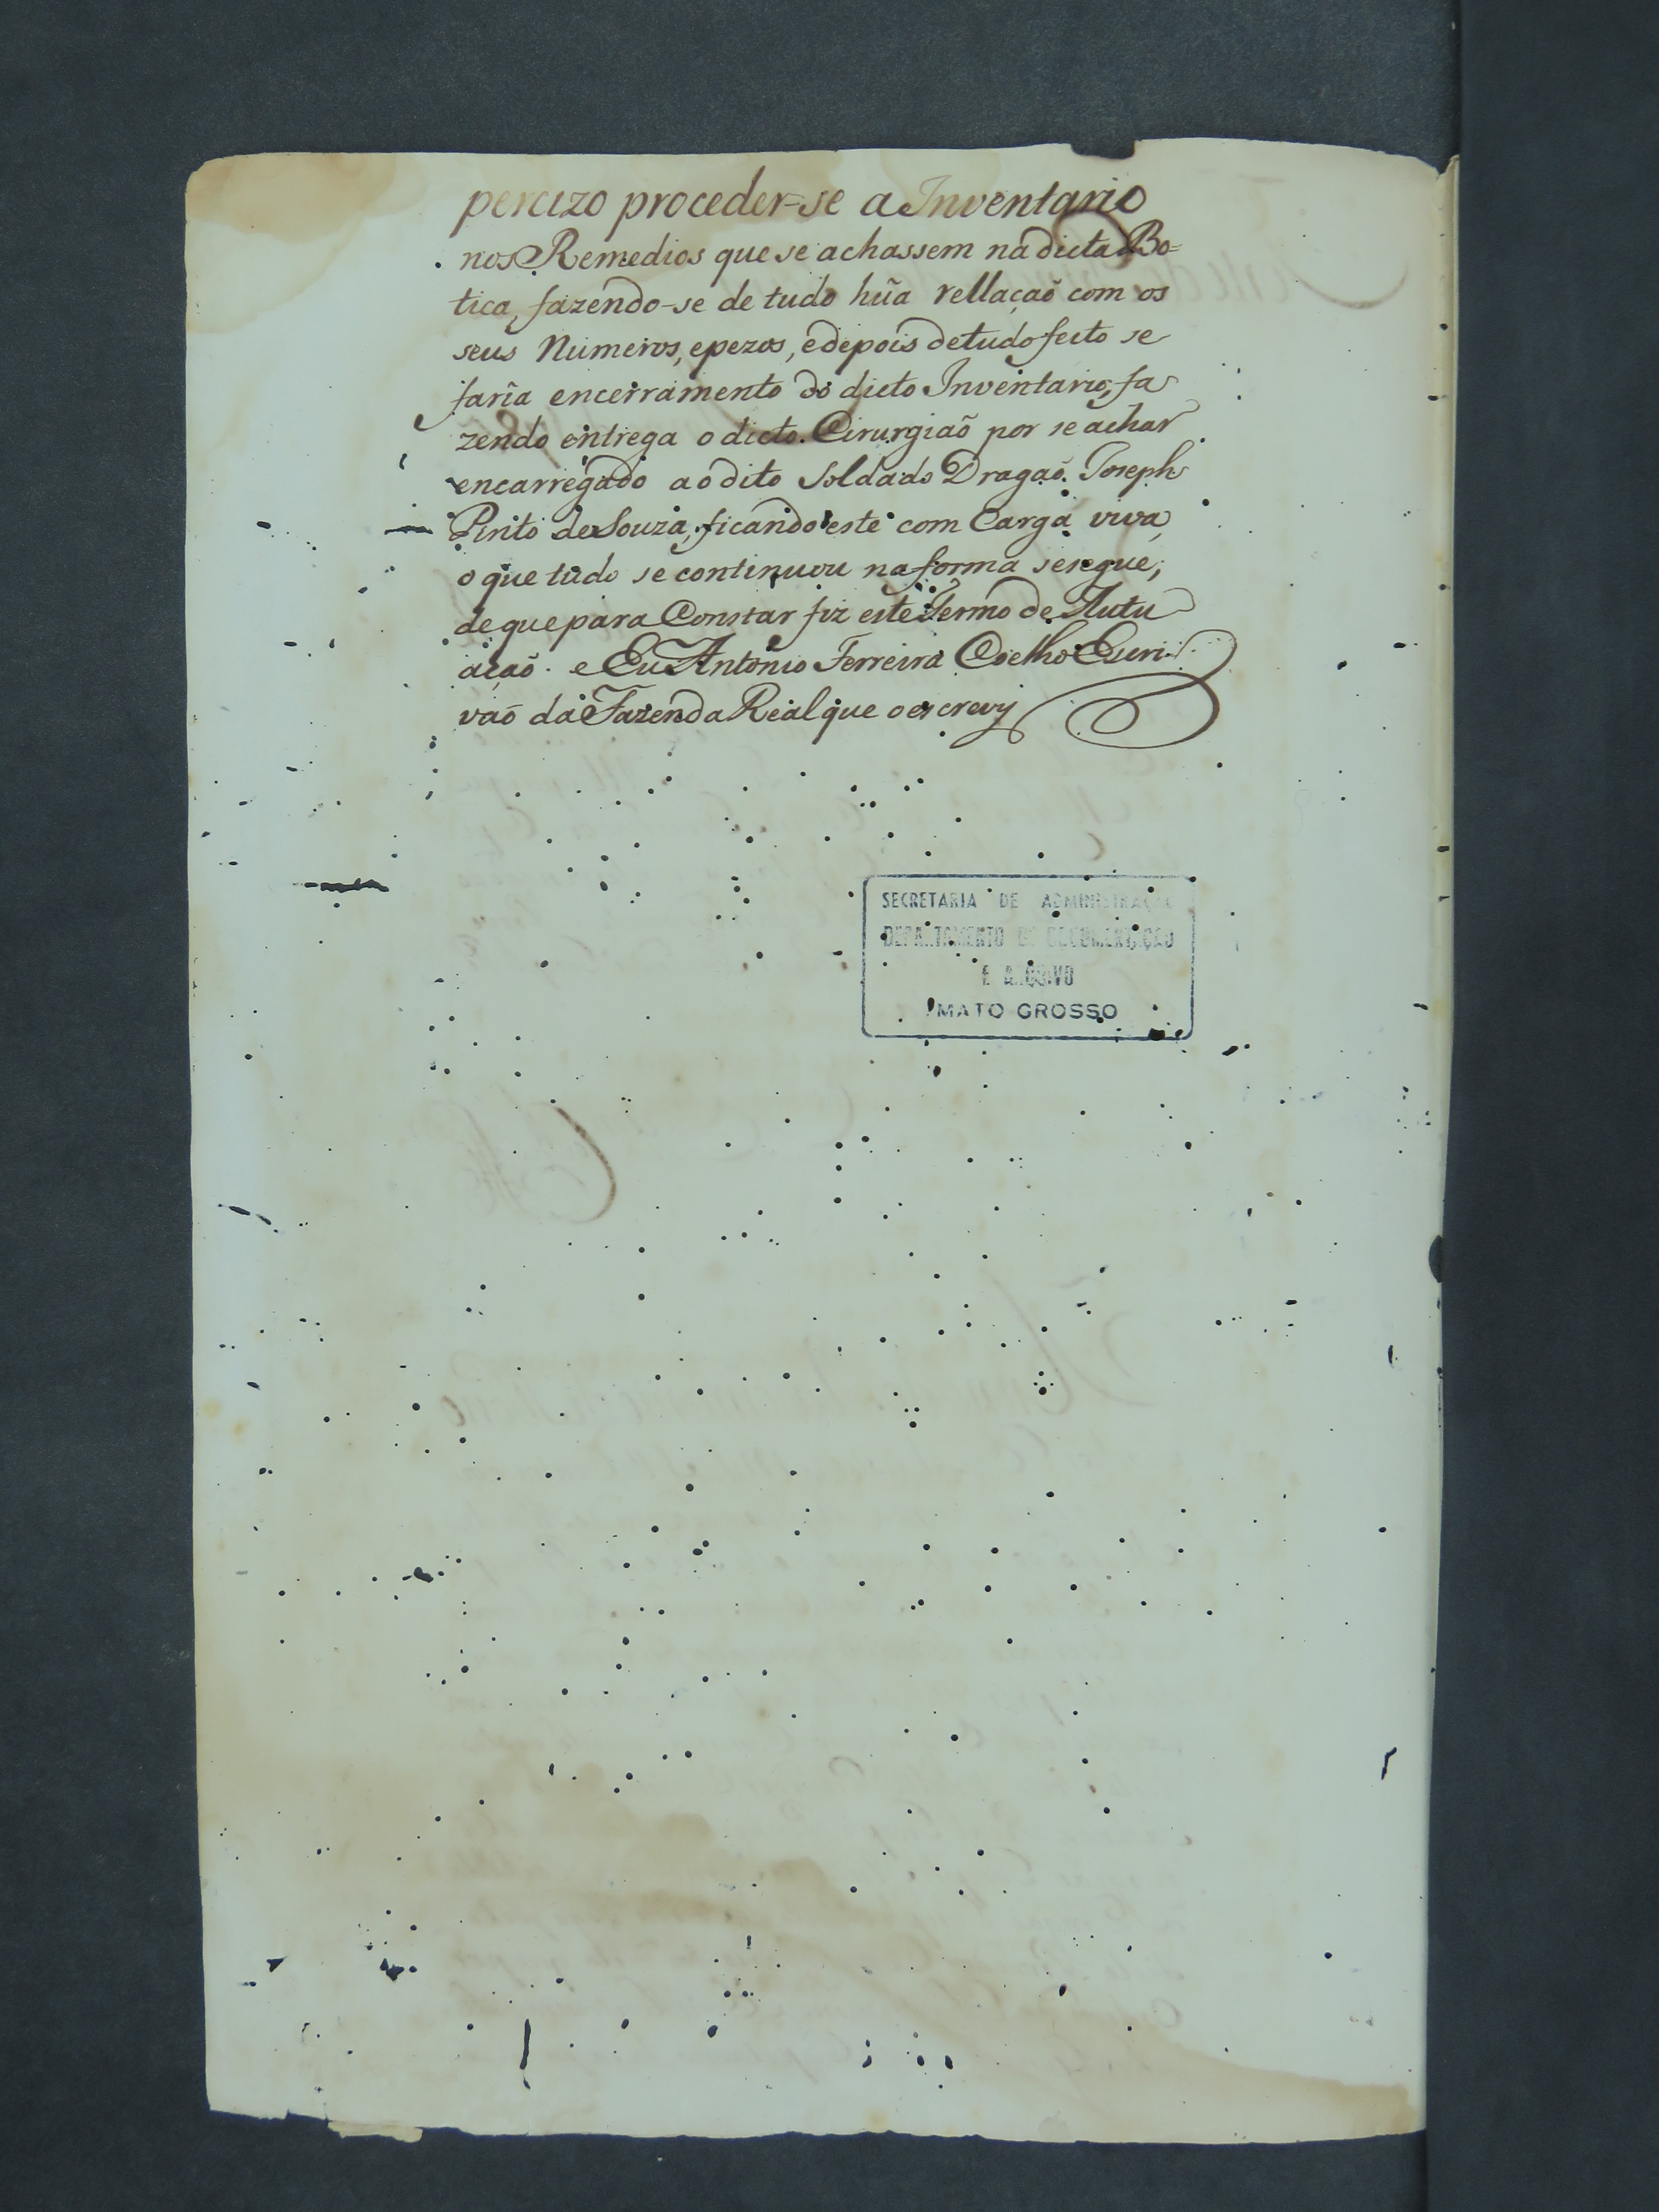 percizo proceder-se a Inventario
nos Remedios que se achassem na dicta Bo=
tica, fazendo-se de tudo hũa rellaçaõ com os
seus Numeros, epezos, edepois detudo feito se
faria encerramento do dicto Inventario, fa
zendo entrega o dicto Cirurgiaõ por se achar
encarregado aodito Soldado Dragaõ Joseph
Pinto de Souza, ficando este com Carga viva,
o que tudo se continuou na forma sesegue,
de que para Constar fiz este Termo de Autu
açaõ. e Eu Antonio Ferreira Coelho Escri
vaõ da Fazenda Real que o escrevy
SECRETARIA DE ADMINISTRAÇÃO
DEPARTAMENTO DE DOCUMENTAÇÃO
E ARQUIVO
MATO GROSSO